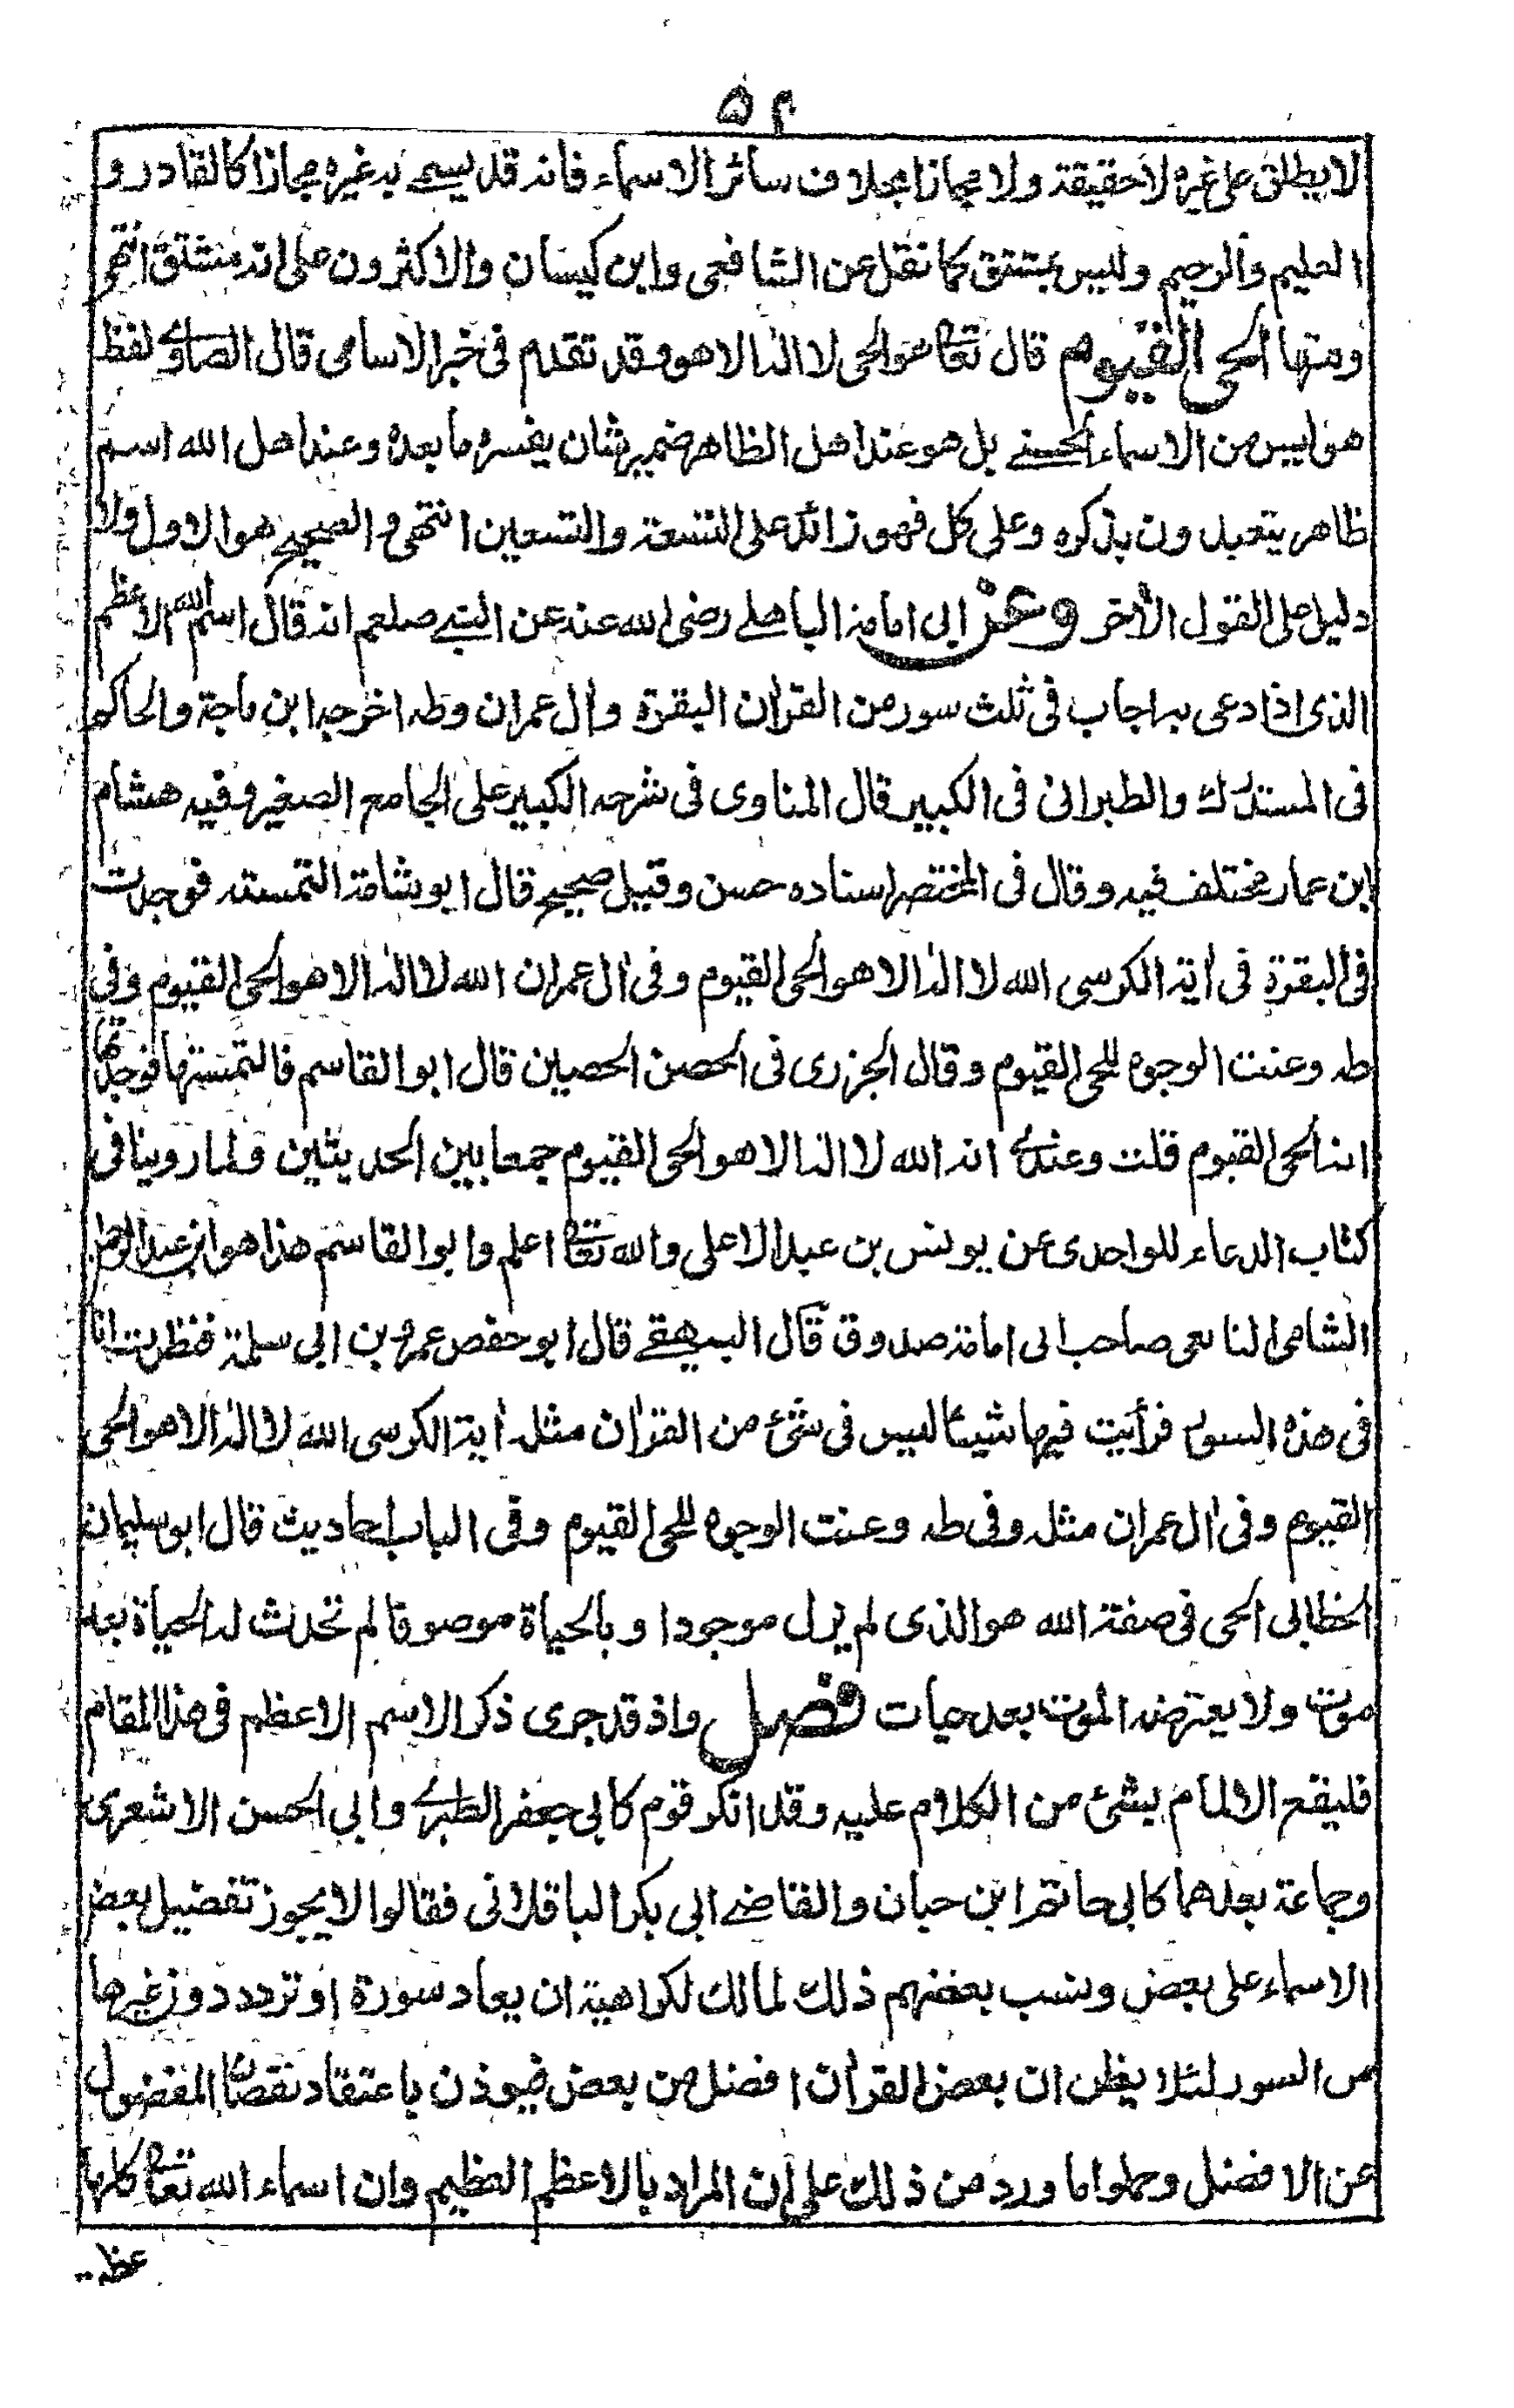 ۵۲
لا يطلق على غيره لا حقيقة ولا مجازا بخلاف سائر الاسماء فانه قد يسمى به غيره مجازا كالقادر و
العليم والرحيم وليس بمشتق كما نقل عن الشافعى وابن كيسان والاكثرون على انه مشتق انتهى
ومنها الحى القيوم قال تعالى هو الحى لا اله الا هو وقد تقدم فى خبر الاسامى قال الصاوى لفظ
هو ليس من الاسماء الحسنى بل هو عند اهل الظاهر ضمير شان يفسره ما بعده وعند اهل الله اسم
ظاهر يتعبدون بذكره وعلى كل فهو زائد على التسعة والتسعين انتهى والصحيح هو الاول ولا
دليل على القول الأخر وعن ابى امامة الباهلى رضى الله عنه عن النبى صلعم انه قال اسم الله الاعظم
الذى اذا دعى به اجاب فى ثلث سور من القران البقرة وال عمران وطه اخرجه ابن ماجة والحاكم
فى المستدرك والطبرانى فى الكبير قال المناوى فى شرحه الكبير على الجامع الصغير وفيه هشام
ابن عمار مختلف فيه وقال فى المختصر اسناده حسن وقيل صحيح قال ابو شامة التمسته فوجدت
فى البقرة فى اية الكرسى الله لا اله الا هو الحى القيوم وفى ال عمران الله لا اله الا هو الحى القيوم وفى
طه وعنت الوجوه للحى القيوم وقال الجزرى فى الحصن الحصين قال ابو القاسم فالتمستها فوجدتها
انه الحى القيوم قلت وعندى انه الله لا اله الا هو الحى القيوم جمعا بين الحديثين ولما روينا فى
كتاب الدعاء للواحدى عن يونس بن عبد الاعلى والله تعالى اعلم وابو القاسم هذا هو ابن عبد الرحمن
الشامى التابعى صاحب ابى امامة صدوق قال البيهقى قال ابو حفص عمرو بن ابى سلمة فنظرت انا
فى هذه السور فرأيت فيها شيئا ليس فى شئ من القران مثله اية الكرسى الله لا اله الا هو الحى
القيوم وفى ال عمران مثله وفى طه وعنت الوجوه للحى القيوم وفى الباب احاديث قال ابو سليمان
الخطابى الحى فى صفة الله هو الذى لم يزل موجودا وبالحياة موصوفا لم تحدث له الحياة بعد
موت ولا يعترضه الموت بعد حيات فصل واذ قد جرى ذكر الاسم الاعظم فى هذا المقام
فليقع الالمام بشئ من الكلام عليه وقد انكر قوم كابى جعفر الطبرى وابى الحسن الاشعرى
وجماعة بعدهما كابى حاتم ابن حبان والقاضى ابى بكر الباقلانى فقالوا لا يجوز تفضيل بعض
الاسماء على بعض ونسب بعضهم ذلك لمالك لكراهية ان يعاد سورة او تردد دون غيرها
من السور لئلا يظن ان بعض القران افضل من بعض فيوذن باعتقاد نقصان المفضول
عن الافضل وحملوا ما ورد من ذلك على ان المراد بالاعظم العظيم وان اسماء الله تعالى كلها